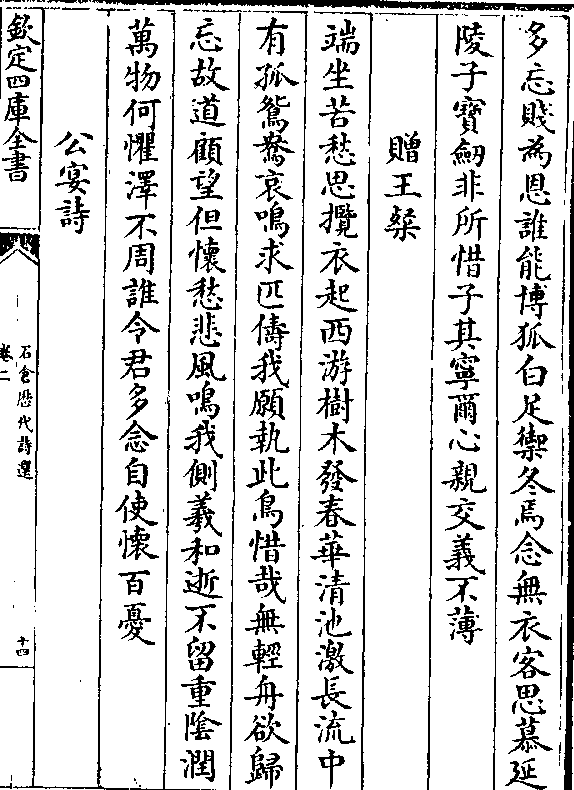 多忘賤為恩誰能博狐白足禦冬焉念無衣客思慕延
陵子寶劒非所惜子其寧爾心親交義不薄
贈王粲
端坐苦愁思攬衣起西游樹木發春華清池激長流中
有孤鴛鴦哀鳴求匹儔我願執此鳥惜哉無輕舟欲歸
忘故道顧望但懷愁悲風鳴我側羲和逝不留重陰潤
萬物何懼澤不周誰令君多念自使懷百憂
公宴詩
欽定四庫全書
石倉歷代詩選
卷二
十四